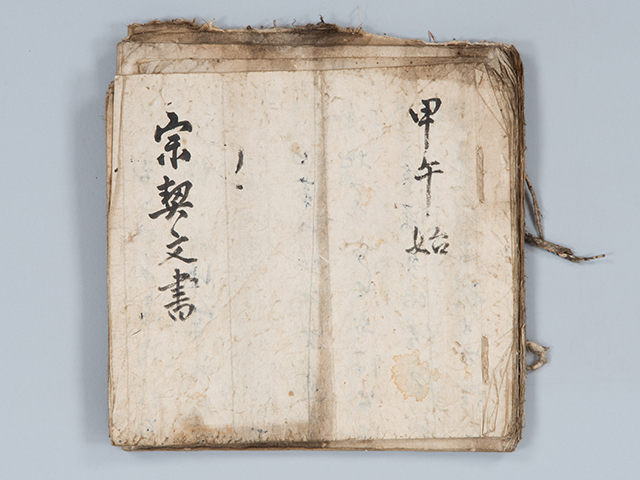 甲午始
宗契文書